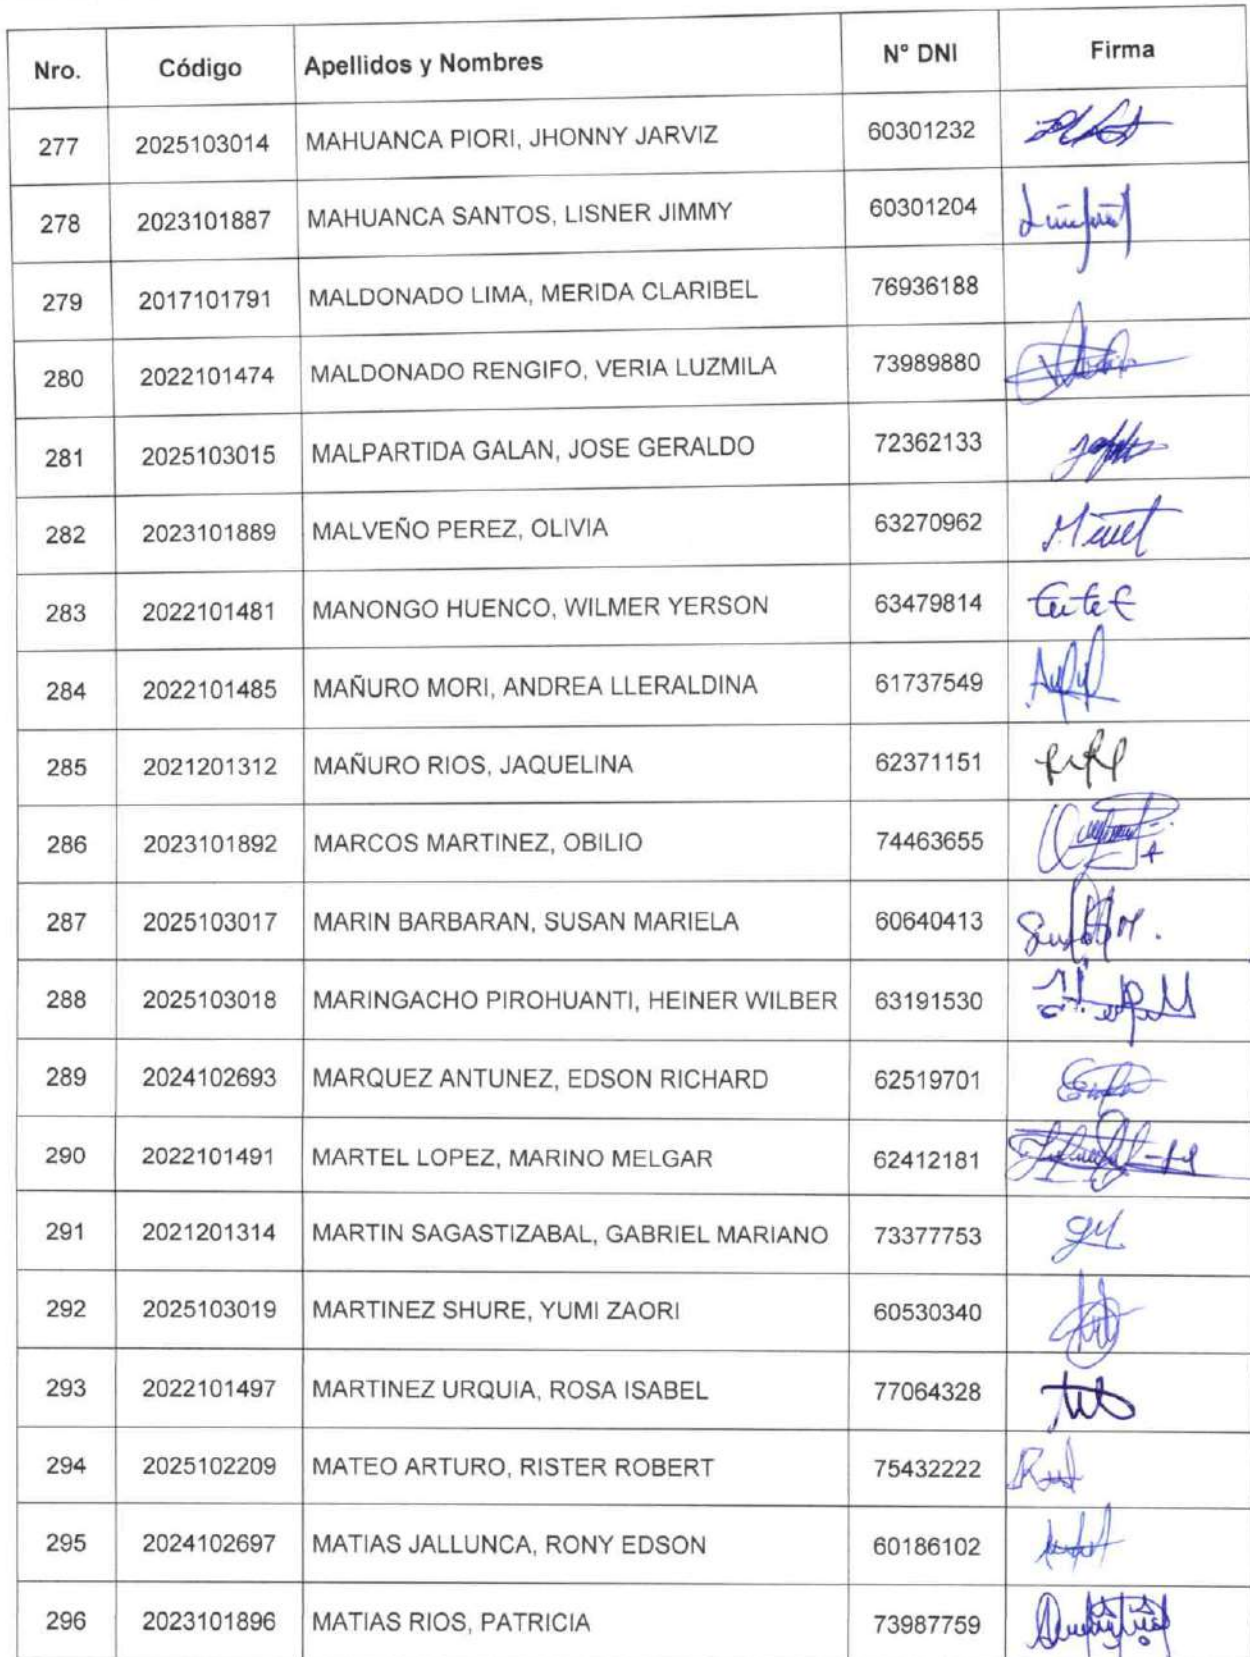 Nro. Código Apellidos y Nombres N° DNI Firma
277 2025103014 MAHUANCA PIORI, JHONNY JARVIZ 60301232
278 2023101887 MAHUANCA SANTOS, LISNER JIMMY 60301204
279 2017101791 MALDONADO LIMA, MERIDA CLARIBEL 76936188
280 2022101474 MALDONADO RENGIFO, VERIA LUZMILA 73989880
281 2025103015 MALPARTIDA GALAN, JOSE GERALDO 72362133
282 2023101889 MALVEÑO PEREZ, OLIVIA 63270962
283 2022101481 MANONGO HUENCO, WILMER YERSON 63479814
284 2022101485 MAÑURO MORI, ANDREA LLERALDINA 61737549
285 2021201312 MAÑURO RIOS, JAQUELINA 62371151
286 2023101892 MARCOS MARTINEZ, OBILIO 74463655
287 2025103017 MARIN BARBARAN, SUSAN MARIELA 60640413
288 2025103018 MARINGACHO PIROHUANTI, HEINER WILBER 63191530
289 2024102693 MARQUEZ ANTUNEZ, EDSON RICHARD 62519701
290 2022101491 MARTEL LOPEZ, MARINO MELGAR 62412181
291 2021201314 MARTIN SAGASTIZABAL, GABRIEL MARIANO 73377753
292 2025103019 MARTINEZ SHURE, YUMI ZAORI 60530340
293 2022101497 MARTINEZ URQUIA, ROSA ISABEL 77064328
294 2025102209 MATEO ARTURO, RISTER ROBERT 75432222
295 2024102697 MATIAS JALLUNCA, RONY EDSON 60186102
296 2023101896 MATIAS RIOS, PATRICIA 73987759